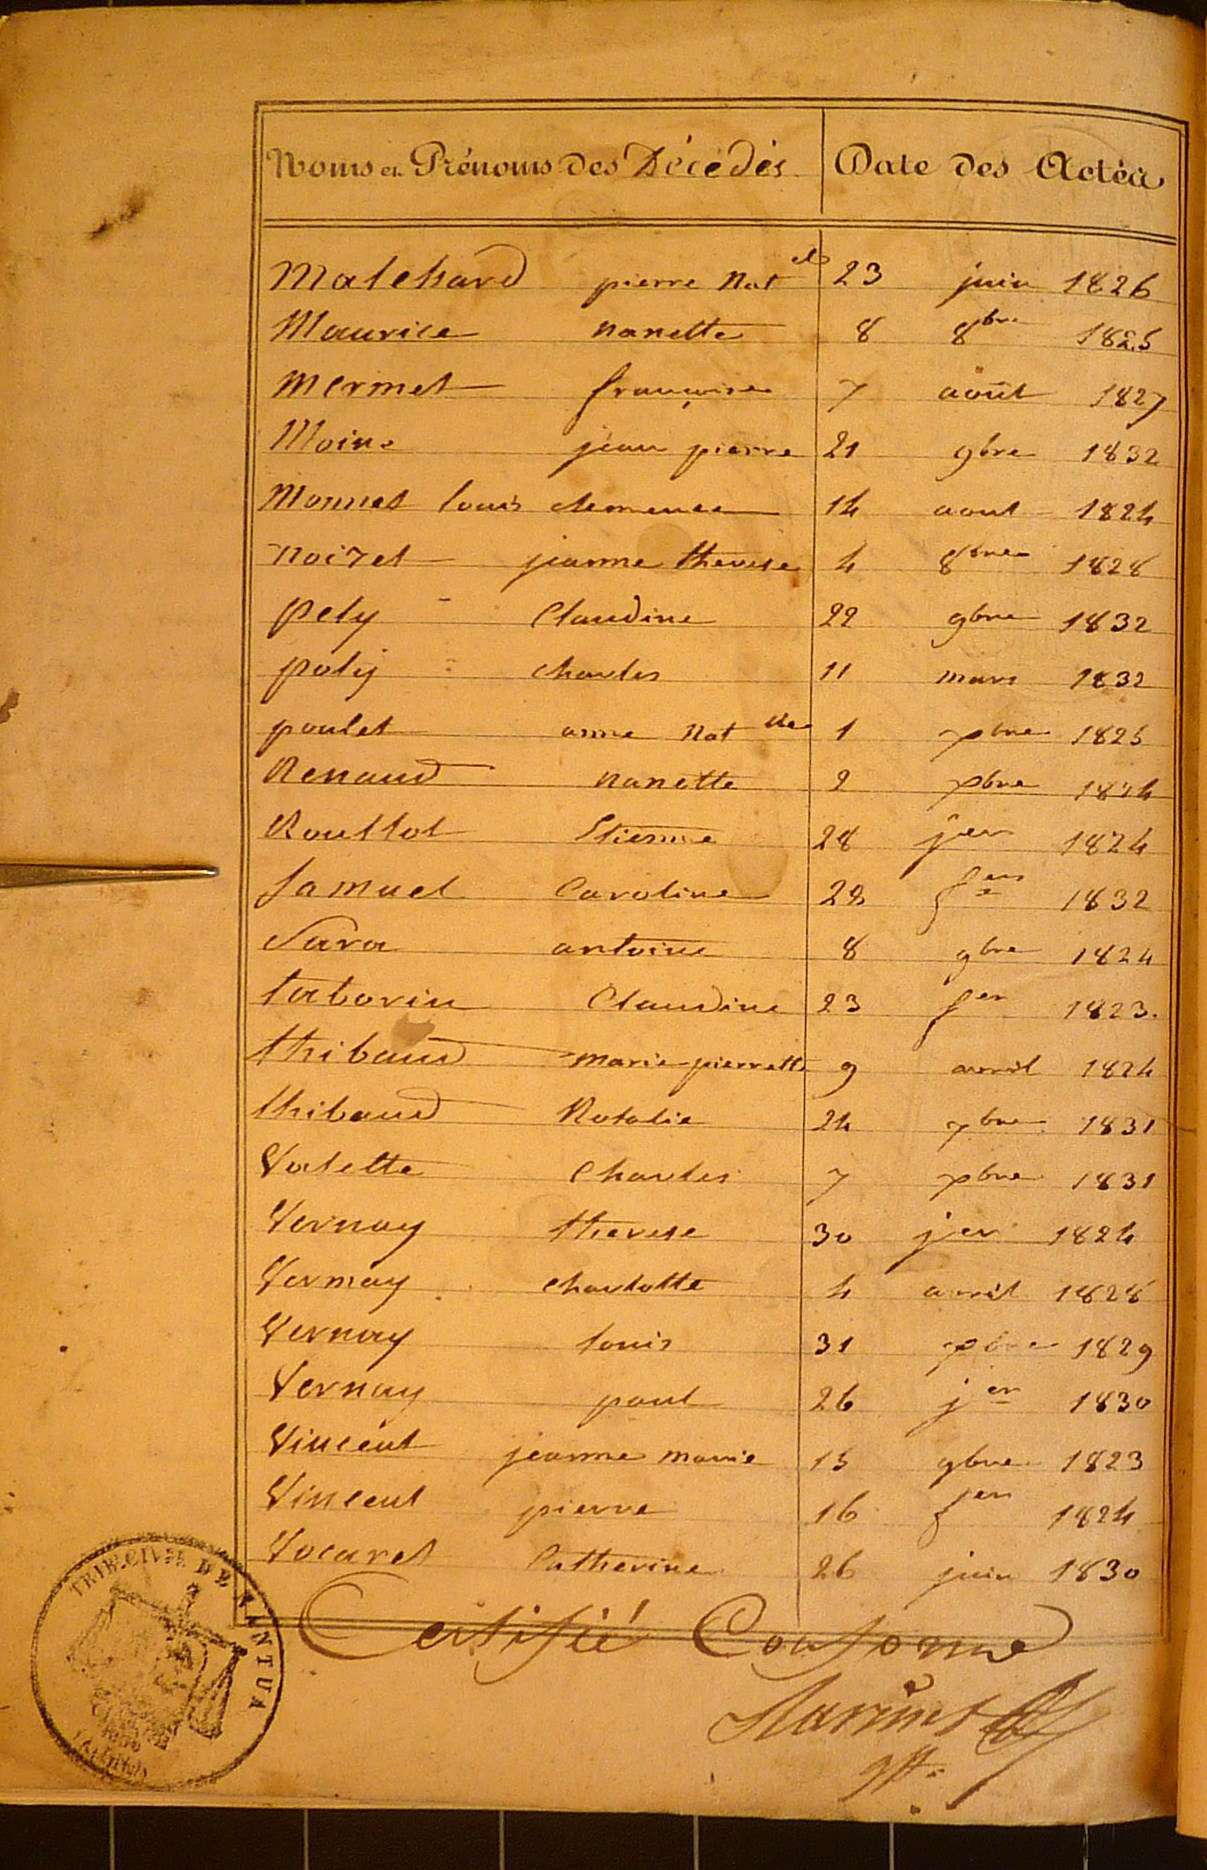 Noms et Prénoms des Décédés Date des Actes
Malchard pierre Nat el 23 juin 1826
Maurice nanette 8 8bre 1825
Mermet françoise 7 août 1827
Moine jean pierre 21 9bre 1832
Monnet louis clemence 14 aout 1824
Noiret jeanne therese 4 8bre 1828
pely Claudine 22 9bre 1832
poly charles 11 mars 1832
poulet anne Nat lle 1 xbre 1825
Renaud nanette 2 xbre 1824
Roullot Etienne 28 jer 1824
Samuel Caroline 28 fer 1832
Sara antoine 8 9bre 1824
taborin Claudine 23 fer 1823.
thibaud marie-pierrette 9 avril 1824
thibaud Natalie 24 7bre 1831
Valette Charles 7 xbre 1831
Vernay therese 30 jer 1824
Vernay charlotte 4 avril 1828
Vernay louis 31 xbre 1829
Vernay paul 26 jer 1830
Vincent jeanne marie 15 9bre 1823
Vincent pierre 16 1824
Vocaret Catherine 26 juin 1830
Certifié Conforme
TRIB. CIVIL DE NANTUA